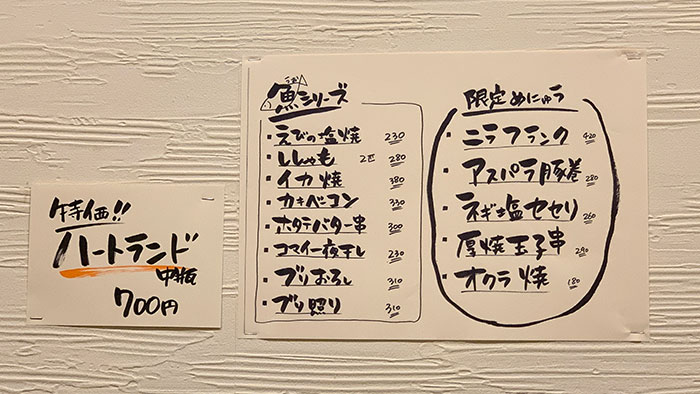 特価!!
ハートランド
中瓶
700円
魚シリーズ
えびの塩焼 230
ししゃも 2匹 280
イカ焼 380
カキベーコン 330
ホタテバター串 300
コマイ一夜干し 230
ブリおろし 310
ブリ照り 310
限定めにゅう
ニラフランク 420
アスパラ豚巻 280
ネギ塩セセリ 260
厚焼玉子串 290
オクラ焼 180